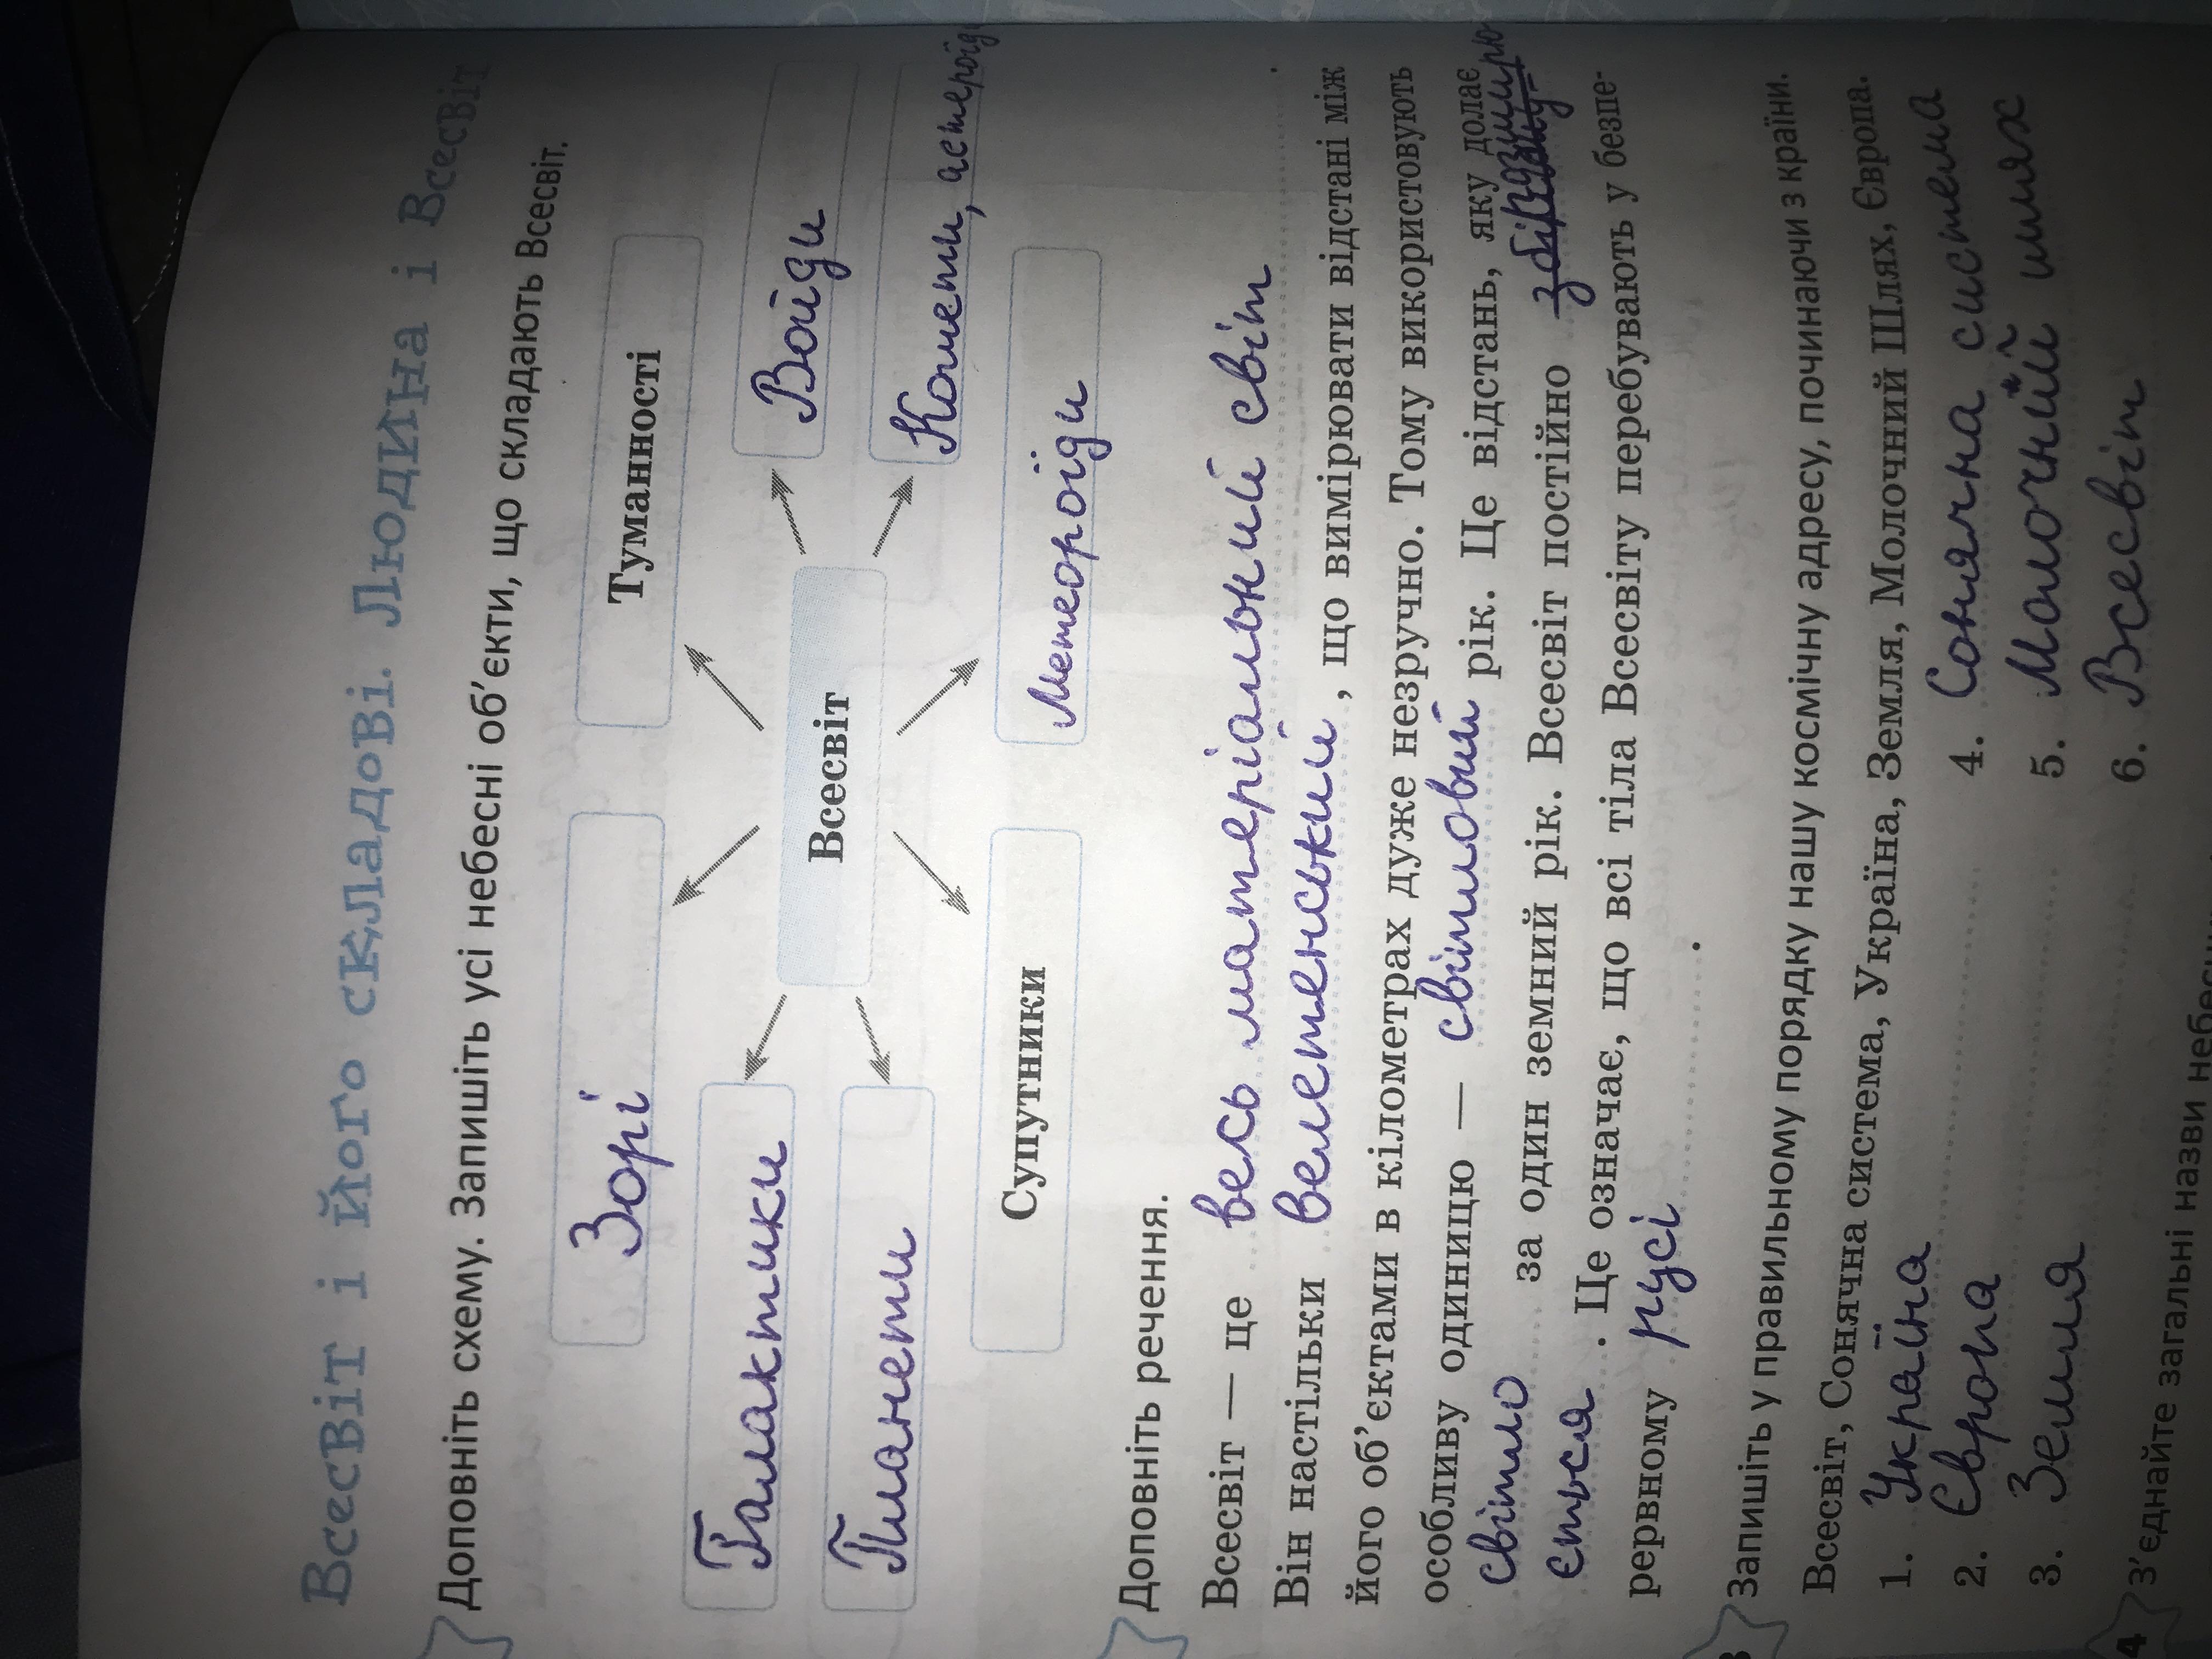 Всесвіт і його складові. Людина і Всесвіт
Доповніть схему. Запишіть усі небесні об’єкти, що складають Всесвіт.
Зорі Туманності
Галактики Войди
Всесвіт
Планети Комети, астероїди
Супутники Метероїди
Доповніть речення.
Всесвіт — це весь матеріальний світ.
Він настільки велетенський, що вимірювати відстані між
його об’єктами в кілометрах дуже незручно. Тому використовують
особливу одиницю — світловий рік. Це відстань, яку долає
світло за один земний рік. Всесвіт постійно розширю
ється. Це означає, що всі тіла Всесвіту перебувають у безпе-
рервному русі.
Запишіть у правильному порядку нашу космічну адресу, починаючи з країни.
Всесвіт, Сонячна система, Україна, Земля, Молочний Шлях, Європа.
1. Україна 4. Сонячна система
2. Європа 5. Молочний шлях
3. Земля 6. Всесвіт
4 З’єднайте загальні назви